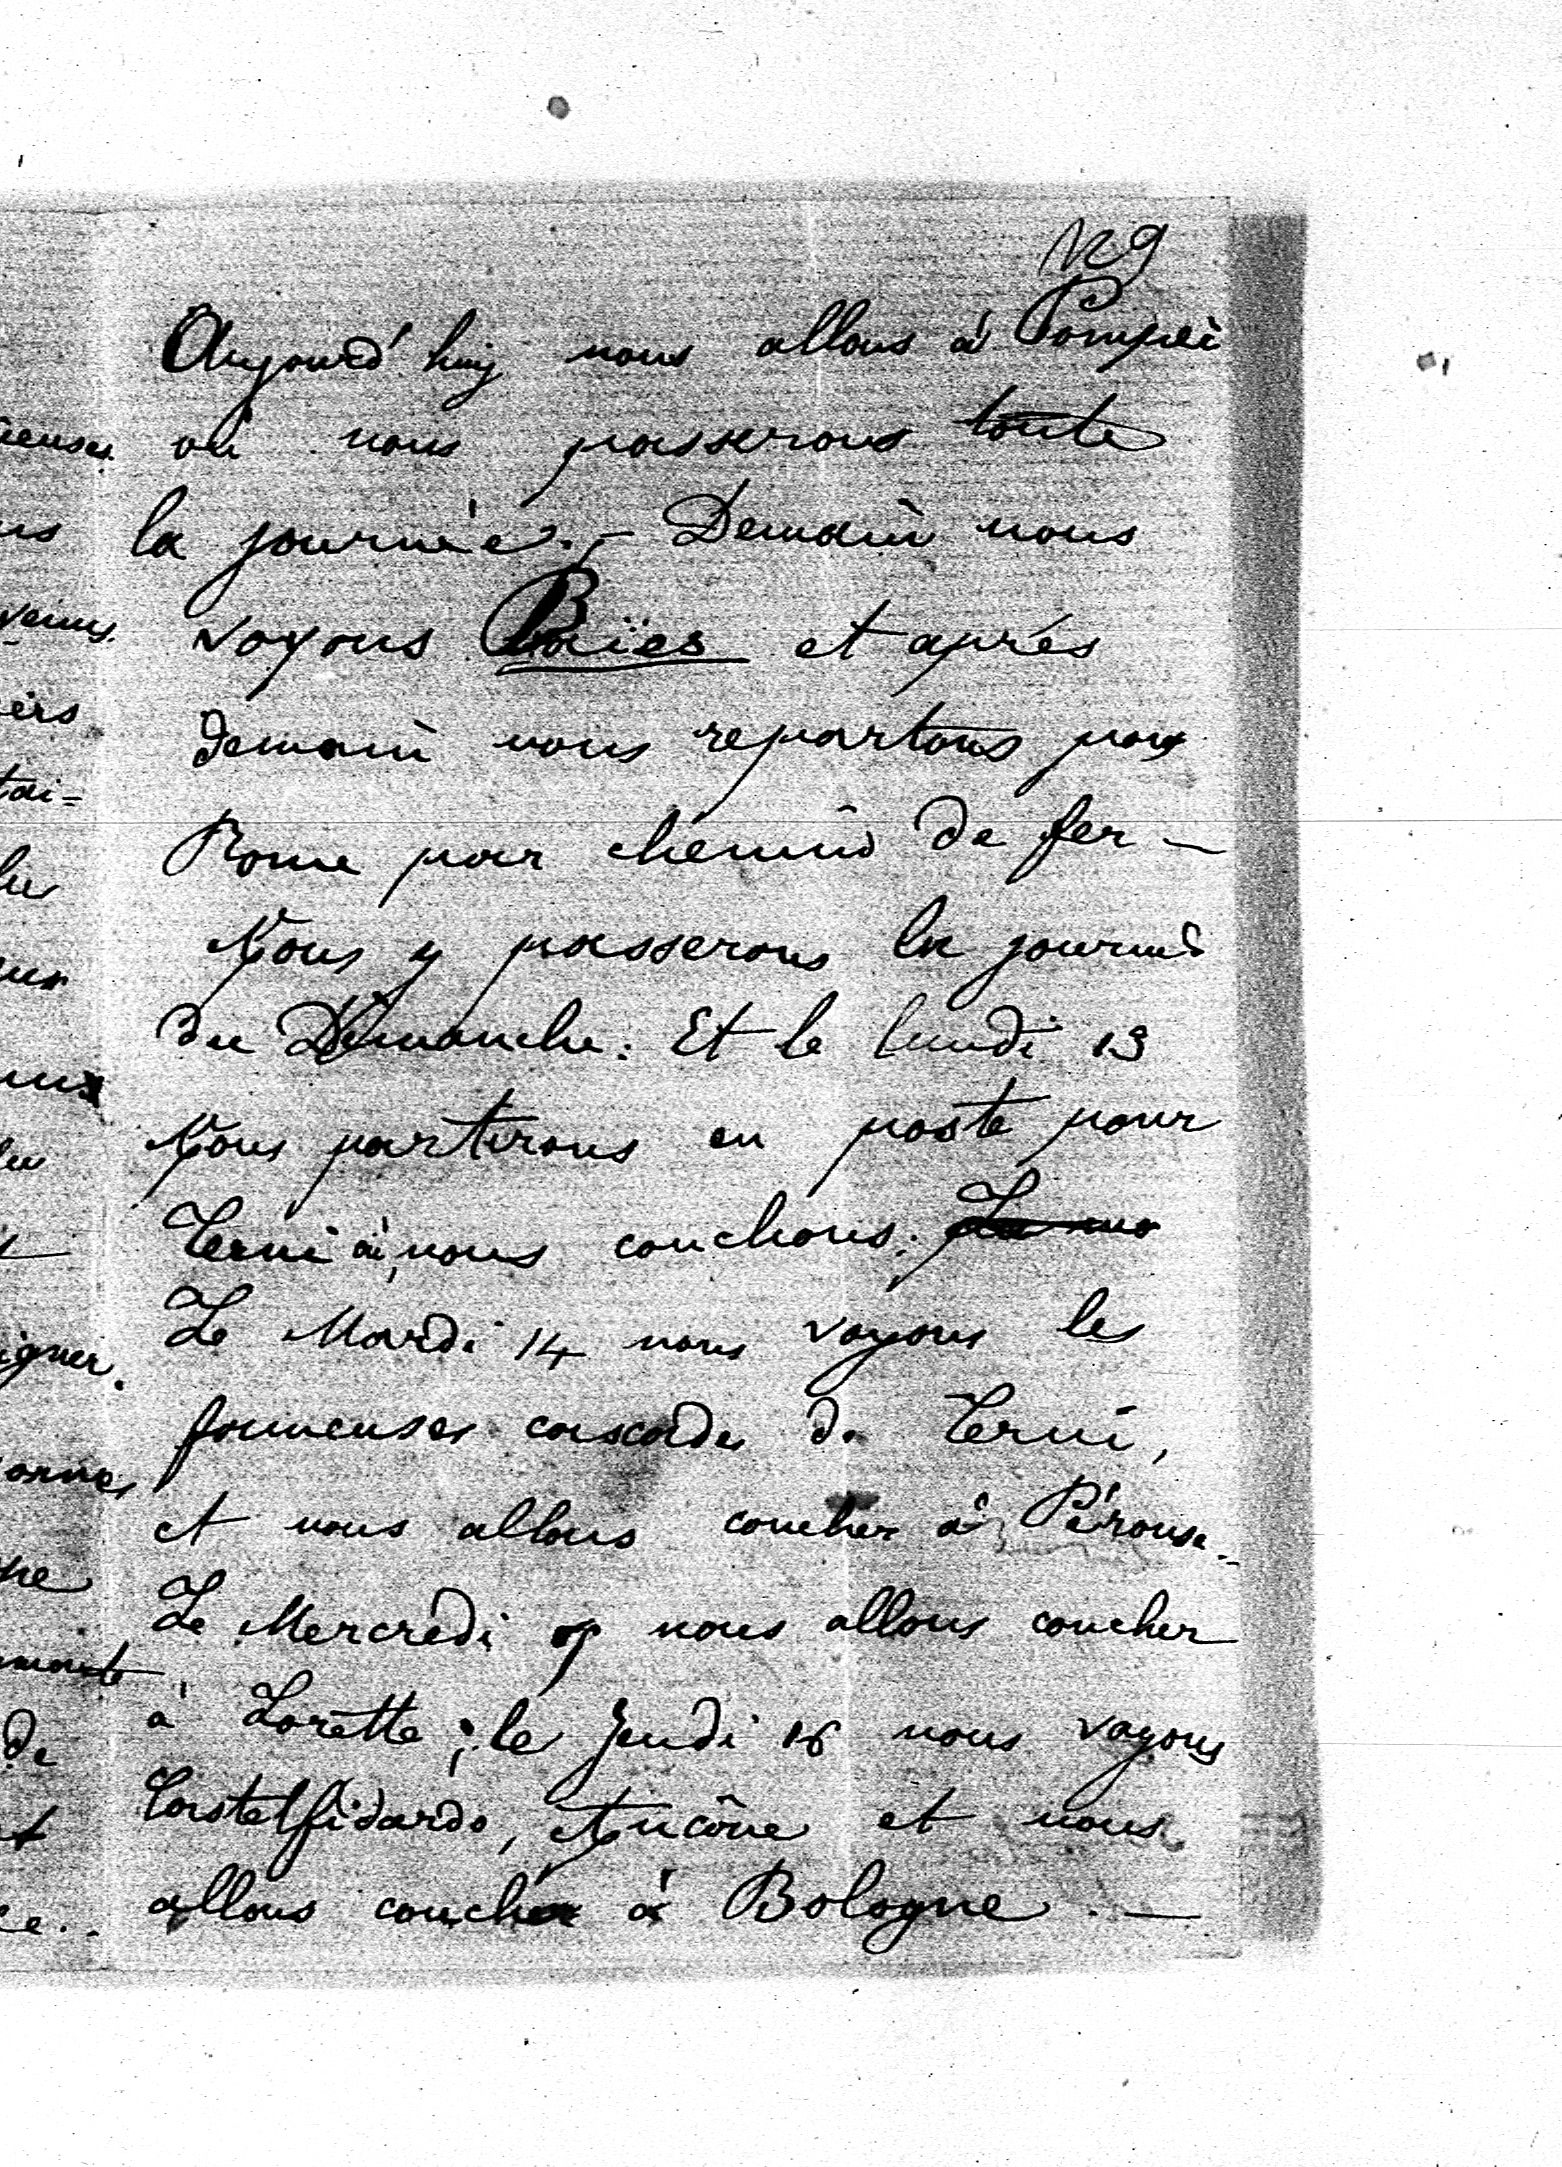 129
Aujourd'hui nous allons à Pompeï
où nous passerons toute
la journée. - Demain nous
voyons Baïes et après
demain nous repartons pour
Rome par chemin de fer -
Nous y passerons la journée
du Dimanche. Et le lundi 13
Nous partirons en poste pour
Terni où nous couchons.
Le Mardi 14 nous voyons les
fameuses cascades de Terni,
et nous allons coucher à Pérouse.
Le Mercredi nous allons coucher
à Lorette ; le Jeudi 16 nous voyons
Castelfidardo, Ancône et nous
allons coucher à Bologne. -